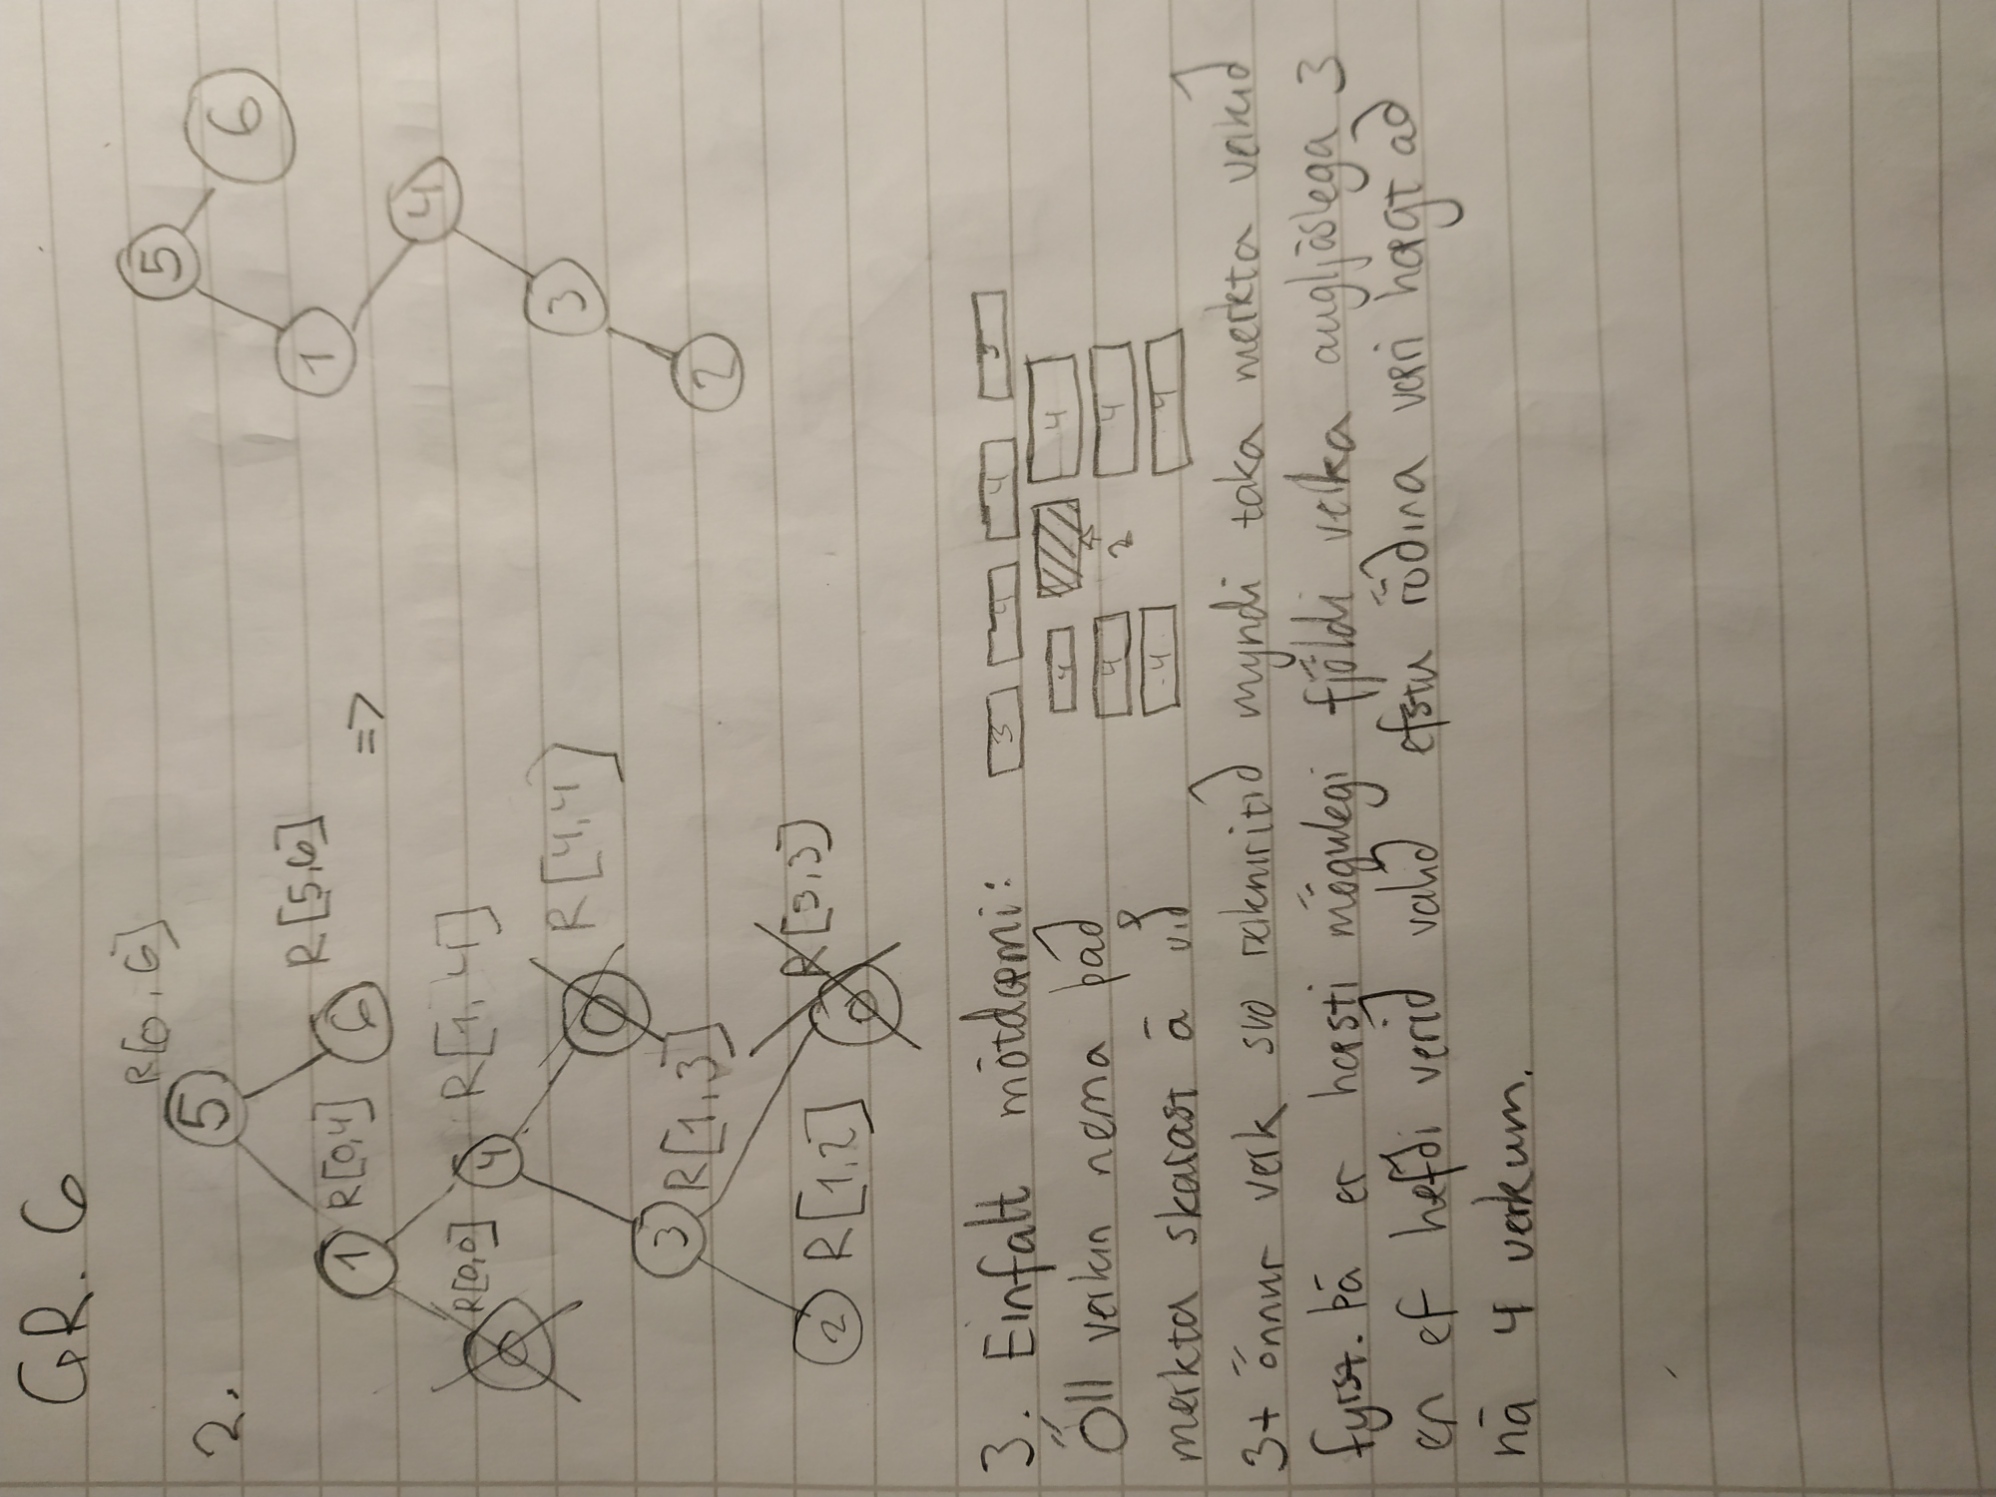 GR. 6
2.
5 R[0,6]
1 R[0,4] 6 R[5,6]
0 R[0,0] 4 R[1,4]
0 R[4,4]
3 R[1,3]
2 R[1,2] 0 R[3,3]
=>
5
6
1
4
3
2
3. Einfalt mótdæmi:
Öll verkin nema það
merkta skarast á við
3+ önnur verk svo reikniritið myndi taka merkta verkið
fyrst. Þá er hæsti mögulegi fjöldi verka augljóslega 3
en ef hefði verið valið efstu röðina væri hægt að
ná 4 verkum.
3 4 4 3
4 4
2
4 4
4 4